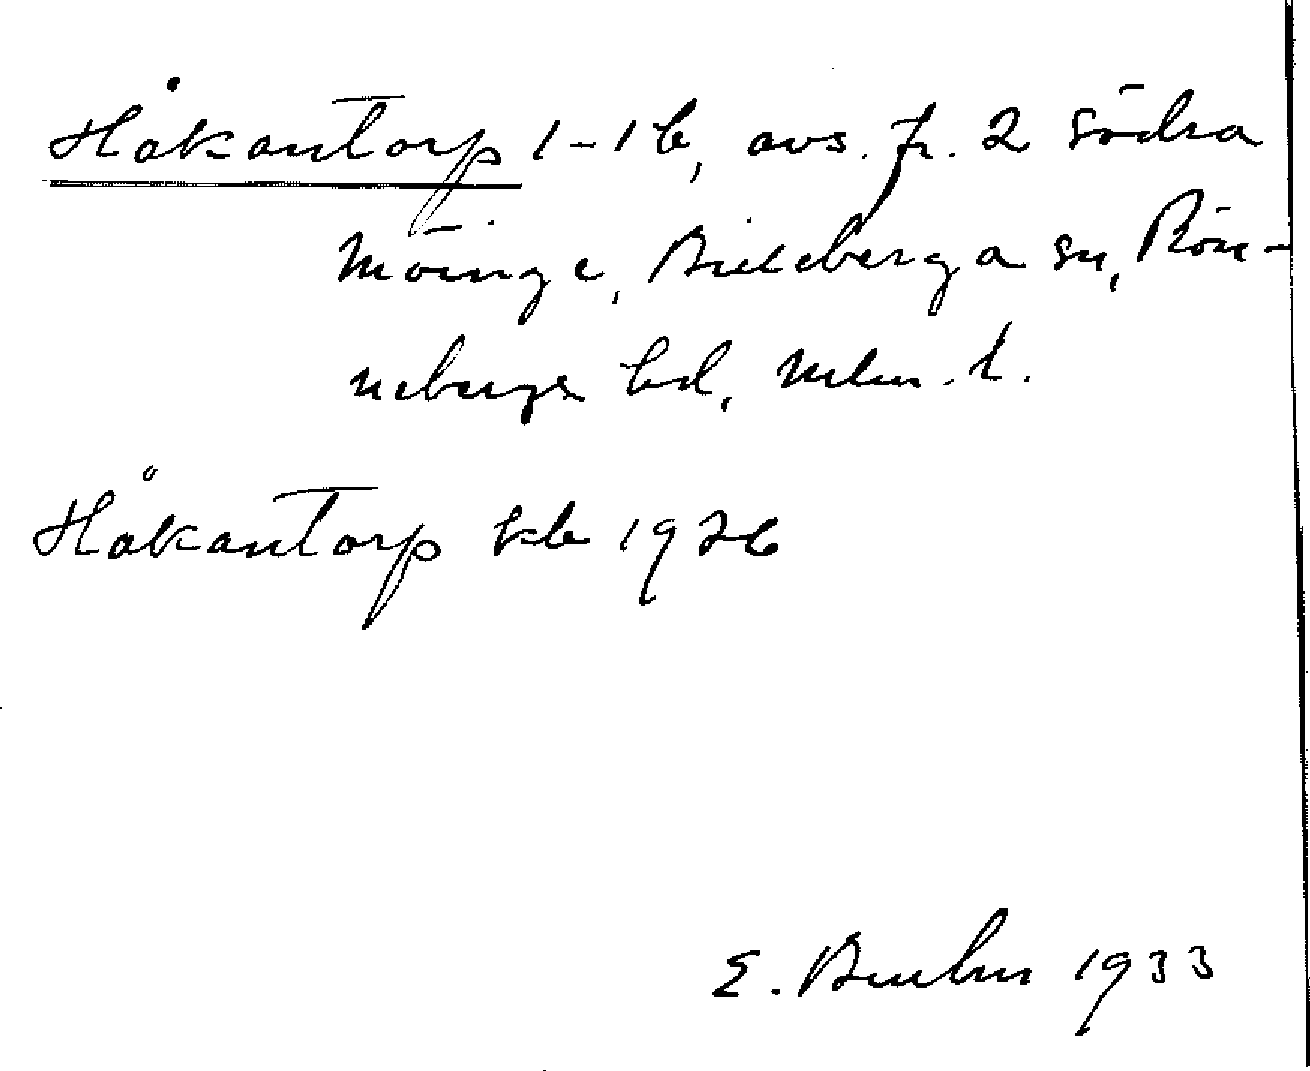 Håkantorp 1-1b, avs. fr. 2 Södra
Möinge, Billeberga sn, Rön-
nebergs hd, Mlm. l.
Håkantorp kb 1926
E. 1933